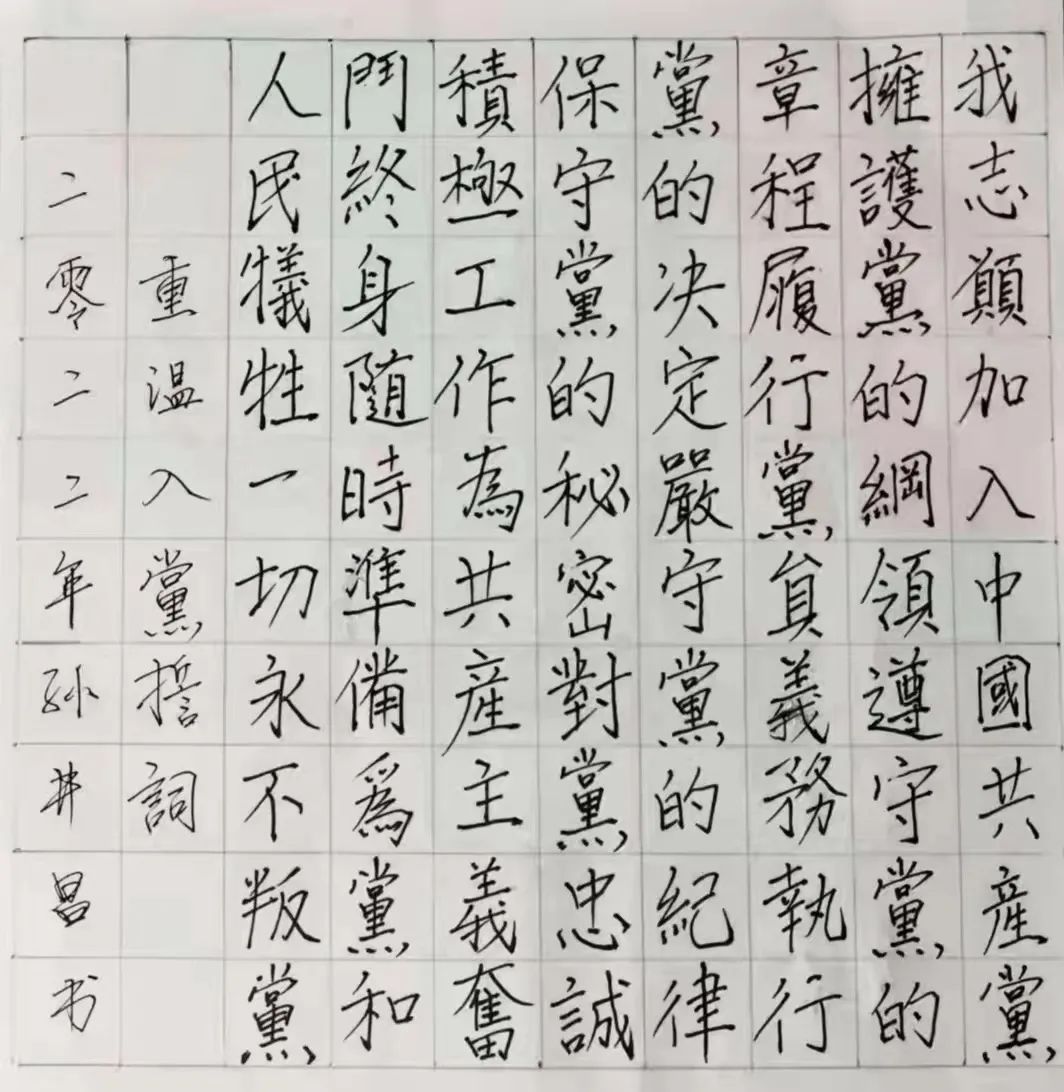 我志願加入中國共產黨
擁護黨的綱領遵守黨的
章程履行黨員義務執行
黨的决定嚴守黨的紀律
保守黨的秘密對黨忠誠
積極工作為共產主義奮
鬥終身隨時準備爲黨和
人民犠牲一切永不叛黨
重温入黨誓詞
二零二二年孙井昌书